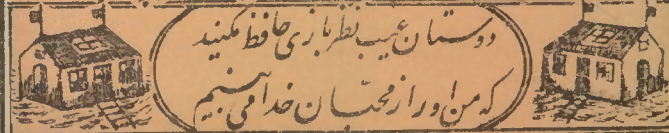 دوستان عیب نظربازی حافظ مکنید
که من او را از محبّان خدا می بینم